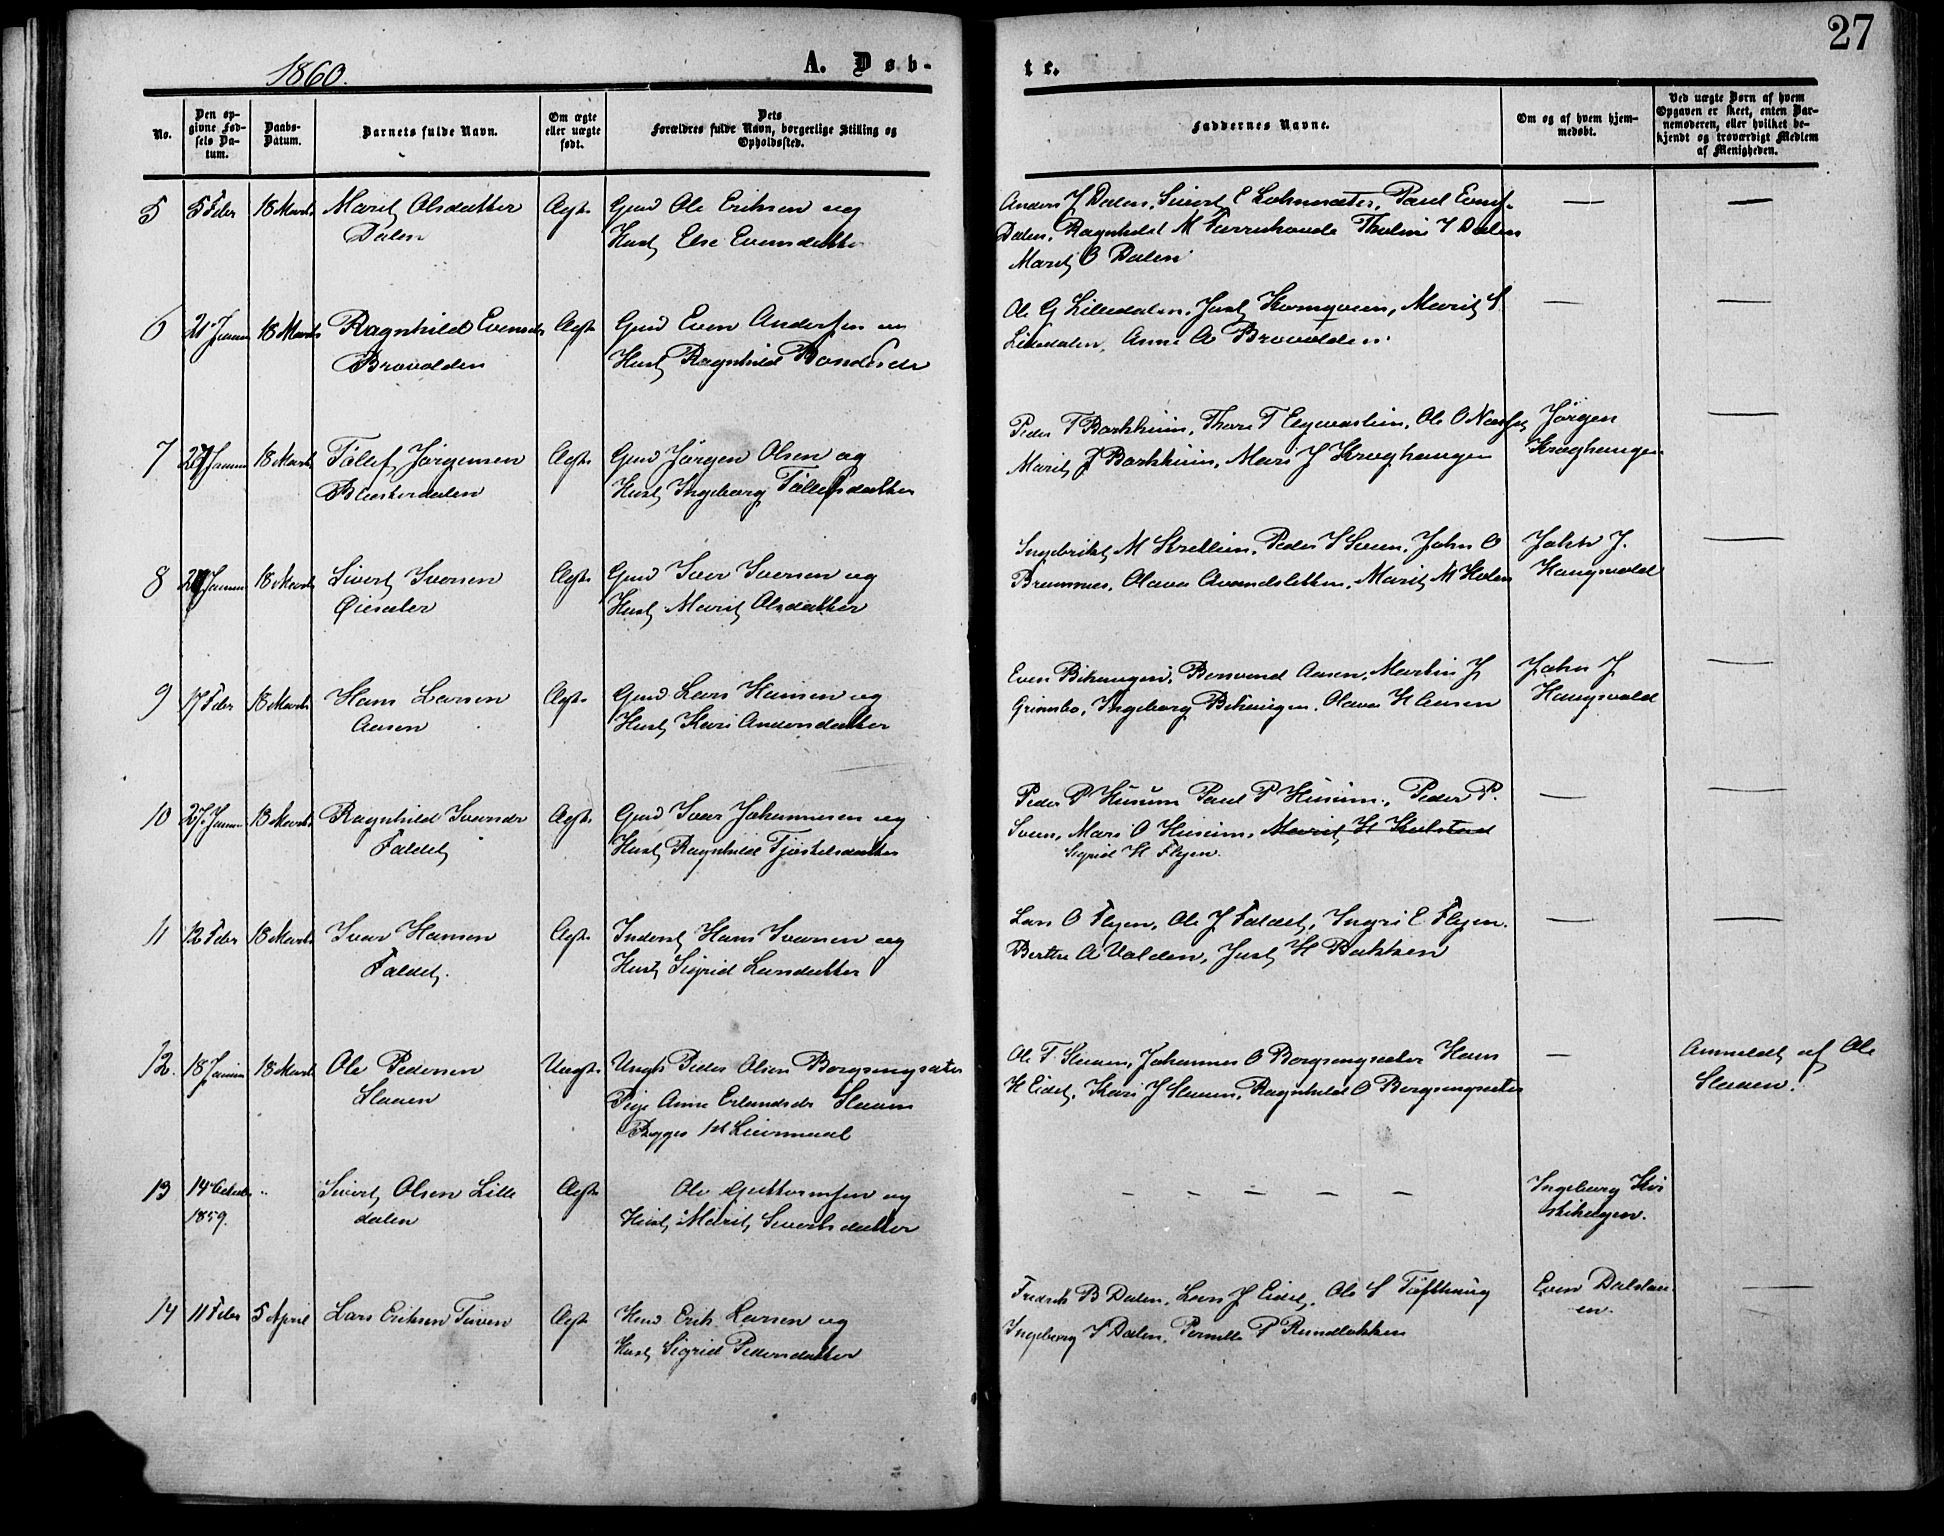 27
1860.
A. Døb-
te.
No.
Den op-
givne Fød-
sels Da-
tum.
Daabs-
Datum.
Barnets fulde Navn.
Om ægte
eller uægte
født.
Dets
Forældres fulde Navn, borgerlige Stilling og
Opholdssted.
Faddernes Navne.
Om og af hvem hjem-
medøbt.
Ved uægte Børn af hvem
Opgaven er skeet, enten Bar-
nemoderen, eller hvilket be-
kjendt og troværdigt Medlem
af Menigheden.
5 5 Feber 18 Marts Marit Olsdatter Ægte Gmd Ole Eriksen og
Dalen Hust Else Evensdatter
Anders Dalen, Sivert E Paul
Dalen, Ragnhild M Dalen
Marit O Dalen
6 21 Januar 18 Marts Ragnhild Evensdr Ægte Gmd Even Andersen og
Brovolden Hust Ragnhild Bondesdr
Ole G Lilledalen, Just Marit S.
Lilledalen, Anne A Brovolden.
7 18 Marts Tollef Jørgensen Ægte Gmd Jørgen Olsen og
Hust Ingeborg Tollefsdatter
Peder T Barkheim, Thore T Ole O
Marit J Barkheim, Mari J Kroghaugen
Jørgen
Kroghaugen
8 18 Marts Sivert Iversen Ægte Gmd Iver Iversen og
Øiesæter Hust Marit Olsdatter
Ingebrikt M Strellien, Peder S John O
Olava Marit M Holen
John J.
Haugsvold
9 17 Feber 18 Marts Hans Larsen Ægte Gmd Lars Hansen og
Aasen Hust Kari Andersdatter
Even Bihaugen, Bersvend Aasen, Martin J
Grimsbo, Ingeborg Bihaugen, Olava H Aasen
John J
Haugsvold
10 27 Januar 18 Marts Ragnhild Iversdr Ægte Gmd Iver Johannesen og
Faldet Hust Ragnhild Fjostelsdatter
Peder P Husum Paul P Husum, Peder P.
Mari O Husum, Marit H Kolstad
Sigrid H Flyen.
11 12 Feber 18 Marts Iver Hansen Ægte Inderst Hans Iversen og
Faldet. Hust Sigrid Larsdatter
Lars O Flyen, Ole J Faldet, Ingri E Flyen.
Berthe A Volden, Just H Bakken
12. 18 Januar 18 Marts Ole Pedersen Uægte Ungk Peder Olsen Borgsengsæter
Slaaen Pige Anne Erlandsdr Slaaen
Begges 1ste Leiermaal
Ole T. Slaaen, Johannes O Borgsengsæter Hans
H Eidet, Kari J Slaaen, Ragnhild O Borgsengsæter
Anmeldt af Ole
Slaaen.
13 14 Octobr " Sivert Olsen Lille Ægte Ole Guttormsen og
1859. dalen Hust Marit Sivertsdatter
Ingeborg
14 11 Feber 5 April Lars Eriksen Ægte Hmd Erik Larsen og
Hust Sigrid Pedersdatter
Fredrik B Dalen, Lars J Eidet, Ole S Tofthaug
Ingeborg Dalen, Pernille P Rundlokken
Even
en.